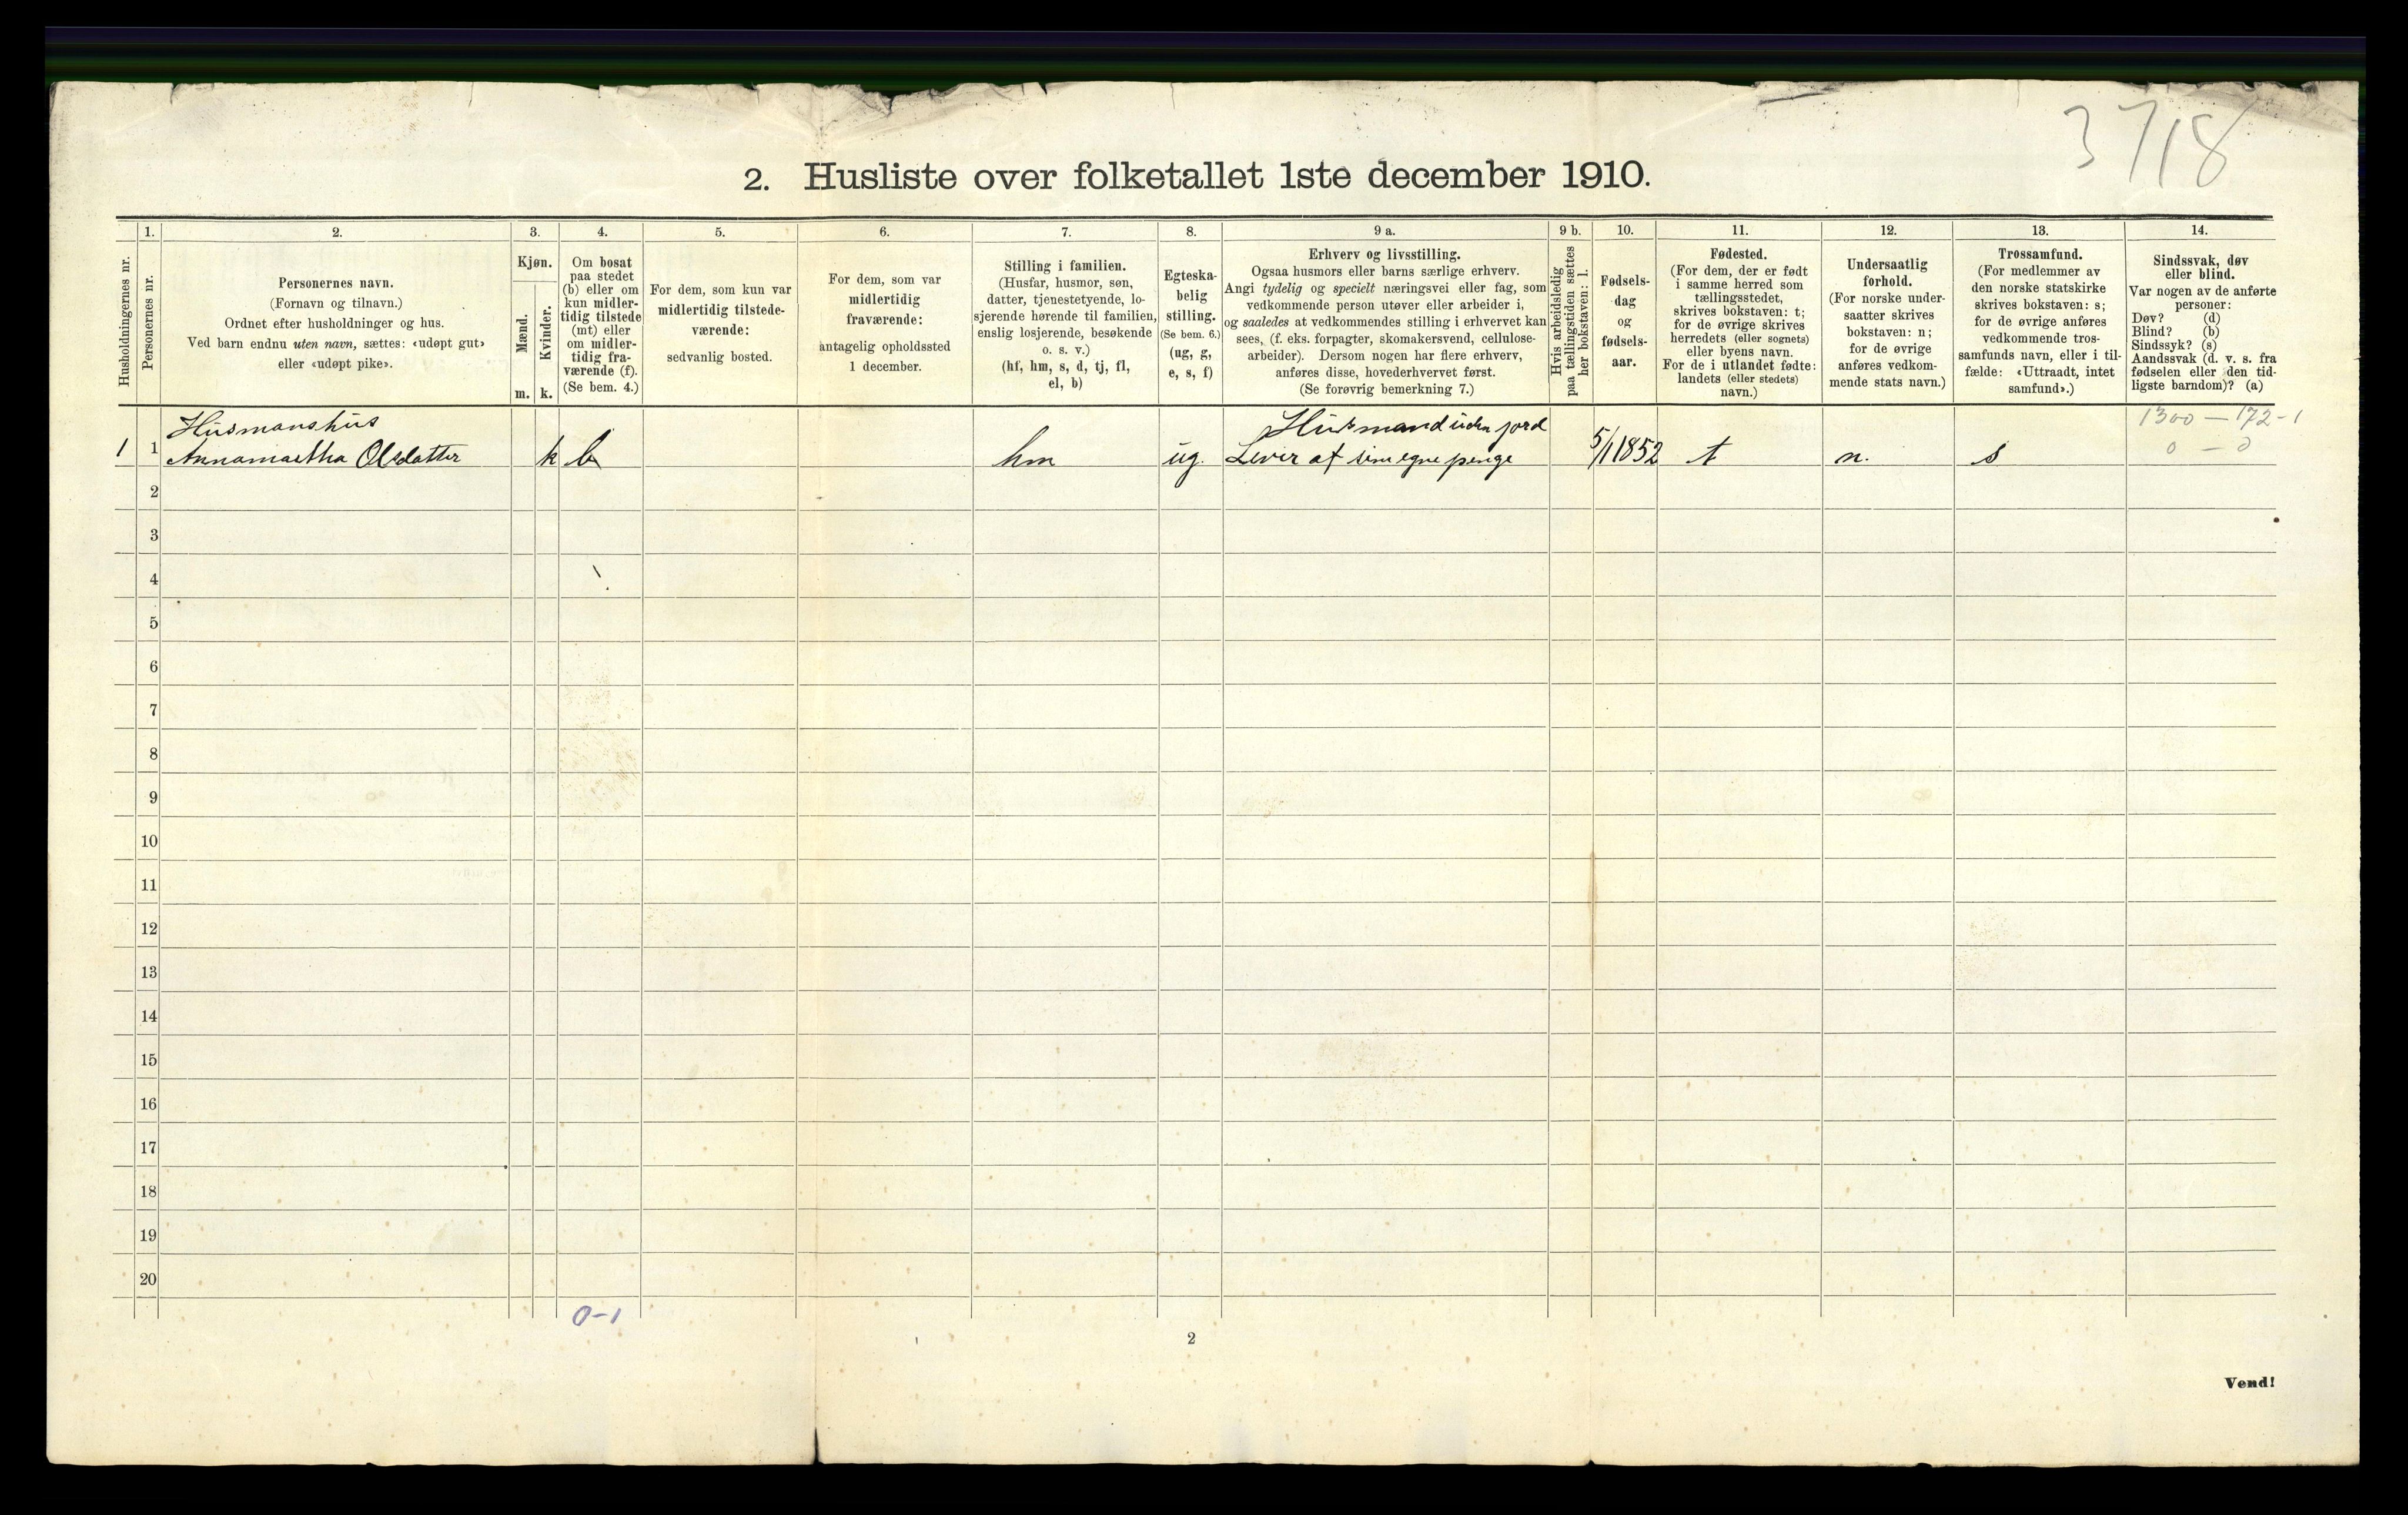 3718
2. Husliste over folketallet 1ste december 1910.
Husholdningernes nr.
1.
Personernes nr.
2.
Personernes navn.
(Fornavn og tilnavn.)
Ordnet efter husholdninger og hus.
Ved barn endnu uten navn, sættes: «udøpt gut»
eller «udøpt pike».
3.
Kjøn.
Mænd.
Kvinder.
m. k.
4.
Om bosat
paa stedet
(b) eller om
kun midler-
tidig tilstede
(mt) eller
om midler-
tidig fra-
værende (f).
(Se bem. 4.)
5.
For dem, som kun var
midlertidig tilstede-
værende:
sedvanlig bosted.
6.
For dem, som var
midlertidig
fraværende:
antagelig opholdssted
1 december.
7.
Stilling i familien.
(Husfar, husmor, søn,
datter, tjenestetyende, lo-
sjerende hørende til familien,
enslig losjerende, besøkende
o. s. v.)
(hf, hm, s, d, tj, fl,
el, b)
8.
Egteska-
belig
stilling.
(Se bem. 6.)
(ug, g,
e, s, f)
9 a.
Erhverv og livsstilling.
Ogsaa husmors eller barns særlige erhverv.
Angi tydelig og specielt næringsvei eller fag, som
vedkommende person utøver eller arbeider i,
og saaledes at vedkommendes stilling i erhvervet kan
sees, (f. eks. forpagter, skomakersvend, cellulose-
arbeider). Dersom nogen har flere erhverv,
anføres disse, hovederhvervet først.
(Se forøvrig bemerkning 7.)
9 b.
Hvis arbeidsledig
paa tællingstiden sættes
her bokstaven: l.
10.
Fødsels-
dag
og
fødsels-
aar.
11.
Fødested.
(For dem, der er født
i samme herred som
tællingsstedet,
skrives bokstaven: t;
for de øvrige skrives
herredets (eller sognets)
eller byens navn.
For de i utlandet fødte:
landets (eller stedets)
navn.)
12.
Undersaatlig
forhold.
(For norske under-
saatter skrives
bokstaven: n;
for de øvrige
anføres vedkom-
mende stats navn.)
13.
Trossamfund.
(For medlemmer av
den norske statskirke
skrives bokstaven: s;
for de øvrige anføres
vedkommende tros-
samfunds navn, eller i til-
fælde: «Uttraadt, intet
samfund».)
14.
Sindssvak, døv
eller blind.
Var nogen av de anførte
personer:
Døv? (d)
Blind? (b)
Sindssyk? (s)
Aandssvak (d. v. s. fra
fødselen eller den tid-
ligste barndom)? (a)
Husmanshus Husmand uden jord 1300 — 172-1
1 1 Annamartha Olsdatter k b hm ug. Lever af sine egne penge 5/1 1852 t n. s 0 — 0
2
3
4
5
6
7
8
9
10
11
12
13
14
15
16
17
18
19
20
0-1
2
Vend!